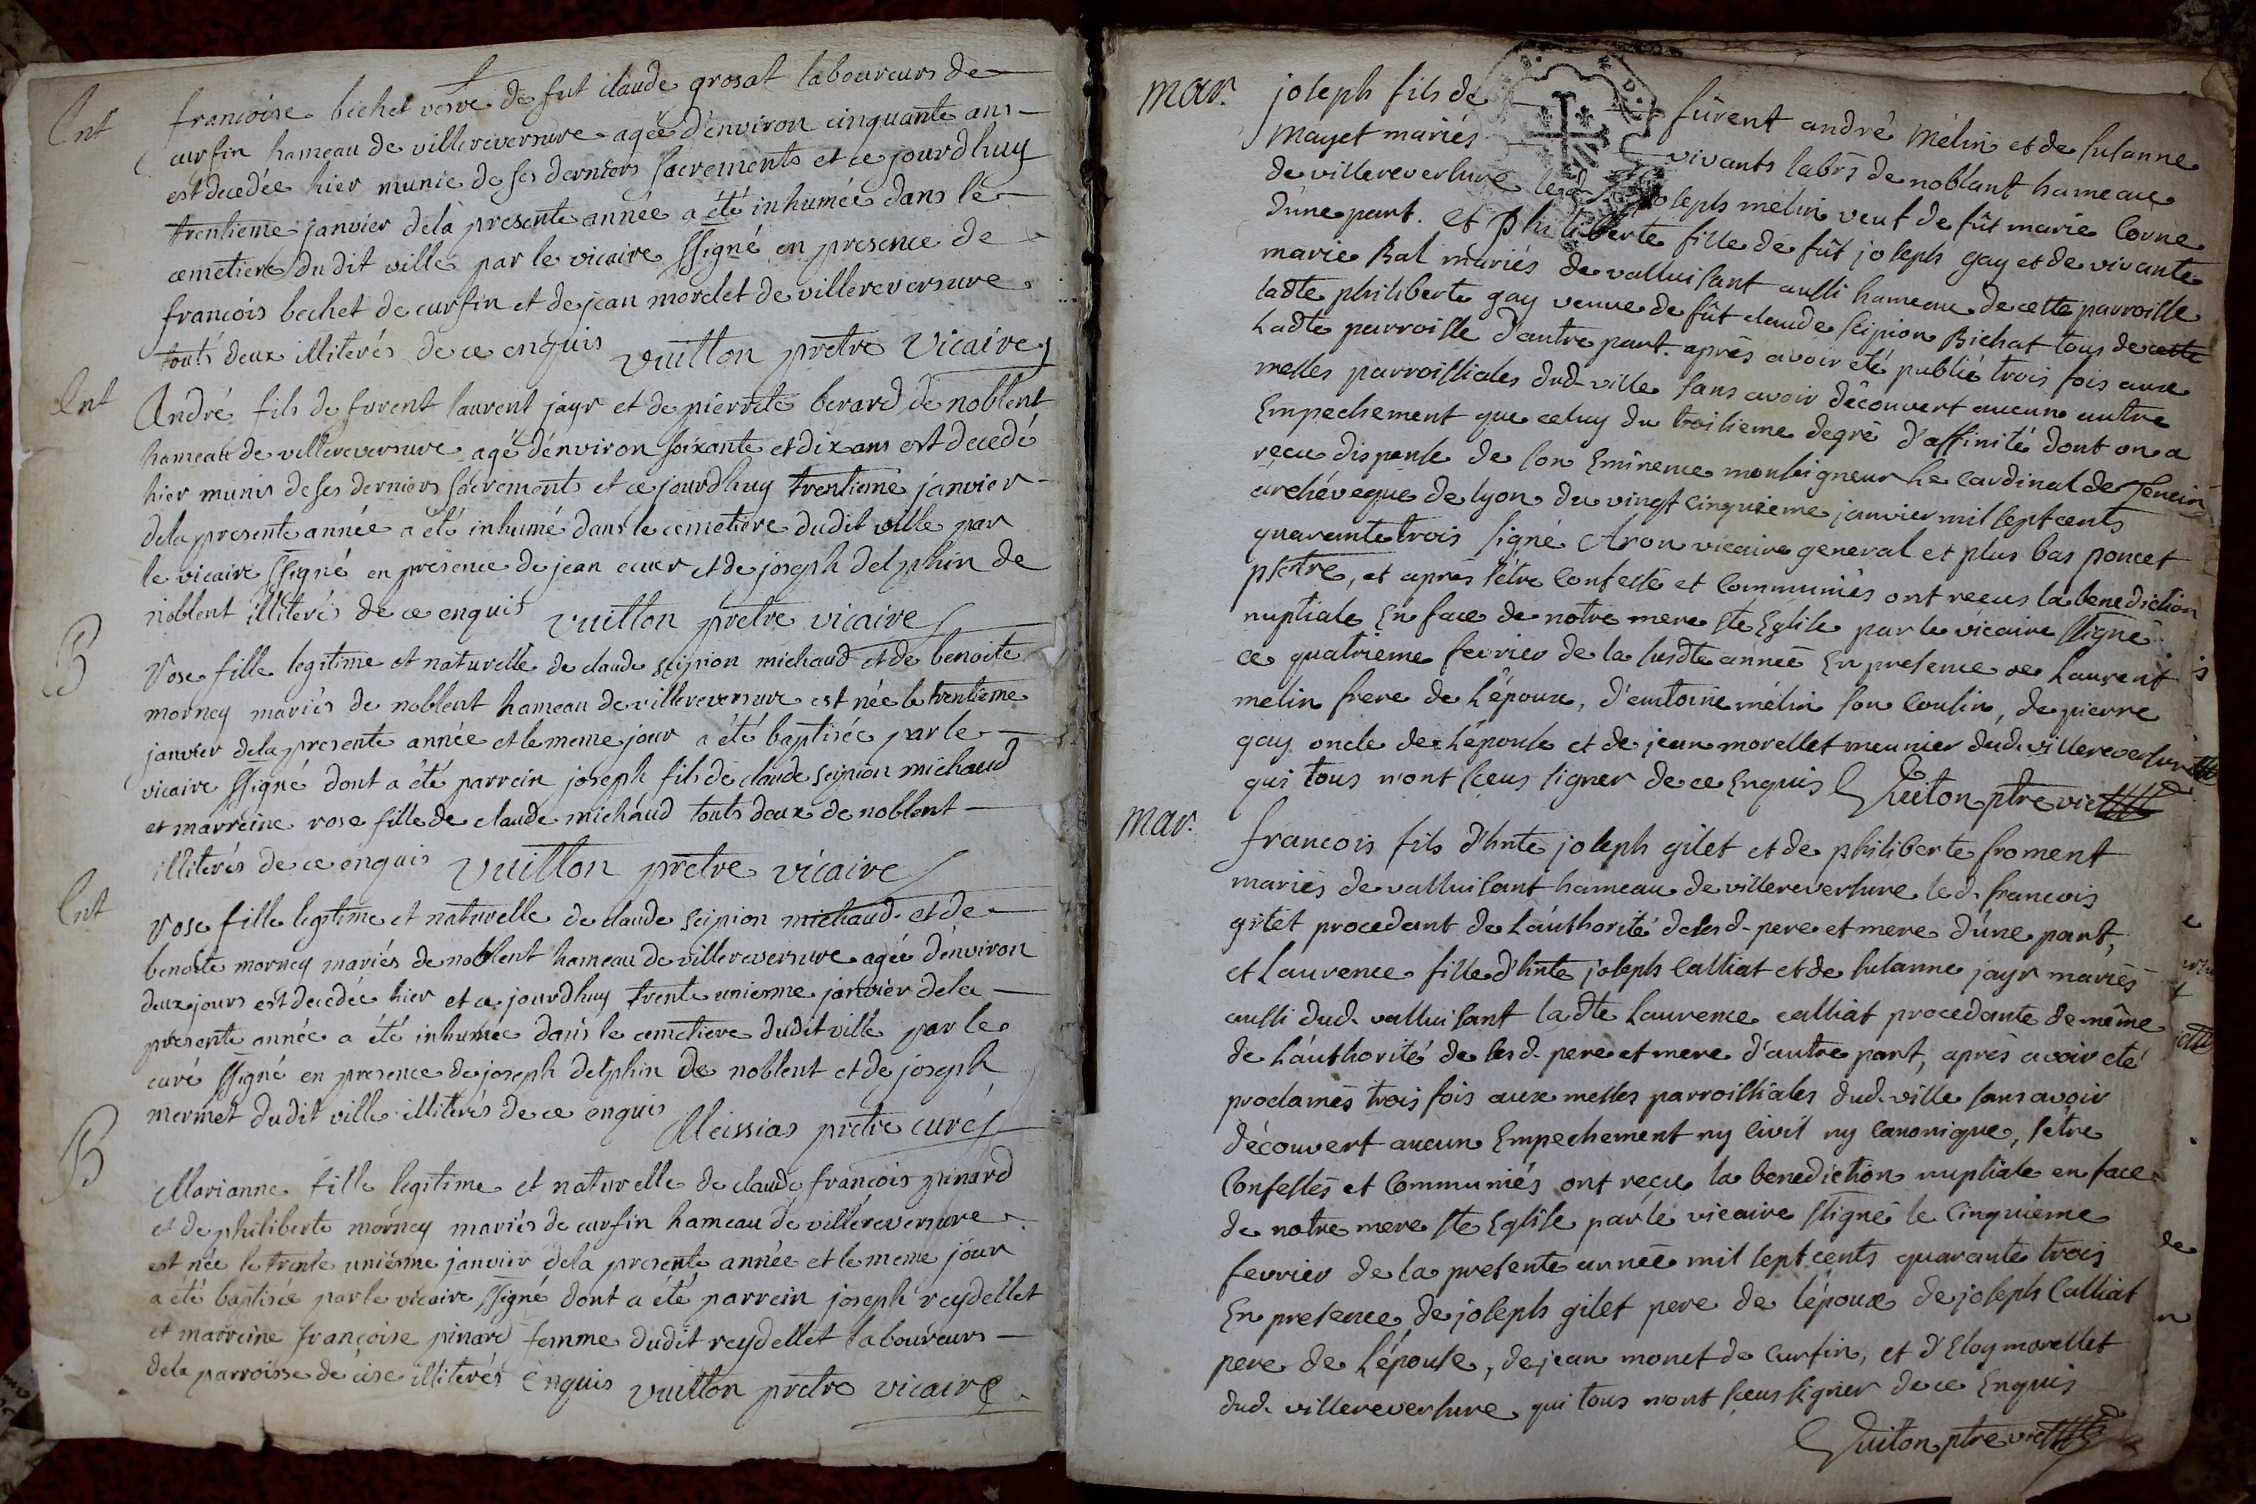 Ent
francoise bechet vesve de fut claude grosat laboureurs de
curfin hameau de villereversure agée d'environ cinquante ans
est decedée hier munie de ses derniers sacrements et ce jourdhuy
trentieme janvier dela presente année a été inhumée dans le
cemetiere dudit ville par le vicaire ssigné en presence de
francois bechet de curfin et de jean morelet de villereversure
touts deux illiterés de ce enquis vuitton pretre vicaire
Ent
André fils de furent laurent jayr et de pierrete berard de noblent
hameau de villereversure agé d'environ soixante et dix ans est decedé
hier munis de ses derniers sacrements et ce jourdhuy trentieme janvier
dela presente année a été inhumé dans le cemetiere dudit ville par
le vicaire ssigné en presence de jean et de joseph delphin de
noblent illiterés de ce enquis vuitton pretre vicaire
B
Rose fille legitime et naturelle de claude scipion michaud et de benoite
morney mariés de noblent hameau de villereversure est née le trentieme
janvier dela presente année et le meme jour a été baptisée par le
vicaire ssigné dont a été parrein joseph fils de claude scipion michaud
et marreine rose fille de claude michaud touts deux de noblent
illiterés de ce enquis vuitton pretre vicaire
Ent
Rose fille legitime et naturelle de claude scipion michaud et de
benoite morney mariés de noblent hameau de villereversure agée d'environ
deux jours est decedée hier et ce jourdhuy trente unieme janvier dela
presente année a été inhumée dans le cemetiere dudit ville par le
curé ssigné en presence de joseph delphin de noblent et de joseph
mermet dudit ville illiterés de ce enquis Meissias pretre curé
B
Marianne fille legitime et naturelle de claude francois pinard
et de philiberte morney mariés de curfin hameau de villereversure
est née le trente unieme janvier dela presente année et le meme jour
a été baptisée par le vicaire ssigné dont a été parrein joseph reydellet
et marreine françoise pinard femme dudit reydellet laboureurs
dela parroisse de cise illiterés enquis vuitton pretre vicaire
mar.
joseph fils de fûrent andré mélin et de susanne
mayet mariés vivants labrs de noblant hameau
de villereversure joseph mélin veuf de fût marie Corne
d'une part. et philiberte fille de fût joseph gay et de vivante
marie Bal mariés de valluisant aussi hameau de cette parroisse
ladte philiberte gay veuve de fût claude scipion Bichat tous de cette
ladte parroisse d'autre part. aprés avoir été publié trois fois aux
messes parroissiales dud. ville sans avoir découvert aucun autre
Empechement que celuy du troisieme degré d'affinité dont on a
reçu dispense de son Eminence monseigneur le Cardinal de Tencin
archévêque de lyon du vingt cinquieme janvier mil sept cents
quarante trois signé Aron vicaire general et plus bas poncet
pretre, et aprés s'être confessé et communiés ont recus la benediction
nuptiale En face de notre mere ste Eglise par le vicaire ssigné
ce quatrieme fevrier de la susdte année En presence de Laurent
melin frere de l'époux, d'entoine mélin son cousin, de pierre
gay oncle de l'épouse et de jean morellet meunier dud. villereversure
qui tous n'ont sceus signer de ce Enquis Vuiton ptre vic
mar.
francois fils d'hnte joseph gilet et de philiberte froment
mariés de valluisant hameau de villereversure led. francois
gilet procedant de l'authorité desd. pere et mere d'une part,
et Laurence fille d'hnte joseph Calliat et de susanne jayr mariés
aussi dud. valluisant ladte Laurence calliat procedante de même
de l'authorité de sesd. pere et mere d'autre part, aprés avoir eté
proclamés trois fois aux messes parroissiales dud. ville sans avoir
découvert aucun Empechement ny civil ny canonique, s'être
Confessés et Communiés ont reçu la benediction nuptiale en face
de notre mere ste Eglise par le vicaire ssigné le Cinquieme
fevrier de la presente année mil sept cents quarante trois
En presence de joseph gilet pere de l'époux de joseph Calliat
pere de l'épouse, de jean monet de Curfin, et d'Eloy morellet
dud. villereversure qui tous n'ont sceus signer de ce Enquis
Vuiton ptre vic